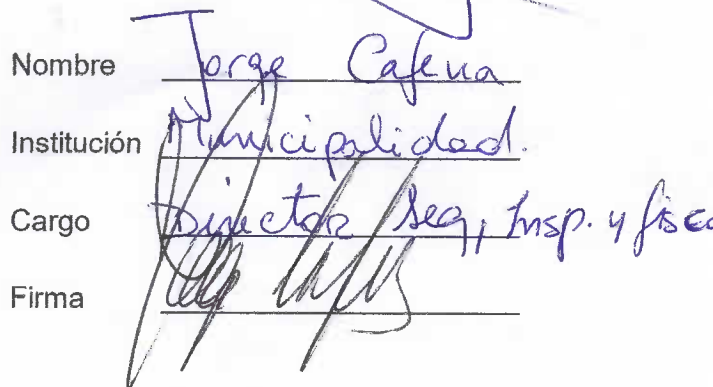 Nombre Jorge Cafena
Institución Municipalidad.
Cargo Director Seg, Insp. y fisca
Firma